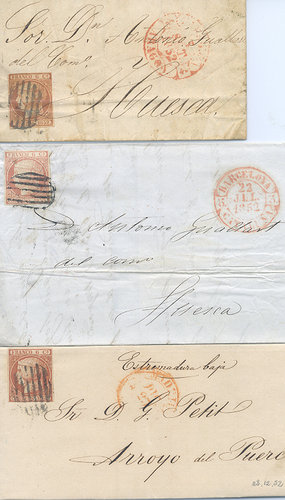 Sor. Dn. Antonio Gualla
del Com.o y
Huesca.
FRANCO 6 Cs
1852
FRANCO 6 Cs
BARCELONA
22
JUL
1852
D. Antonio Guallart
del comо
Huesca
FRANCO 6 Cs
Estremadura baja
Sr D. G. Petit
Arroyo del Puerc
28.12.52